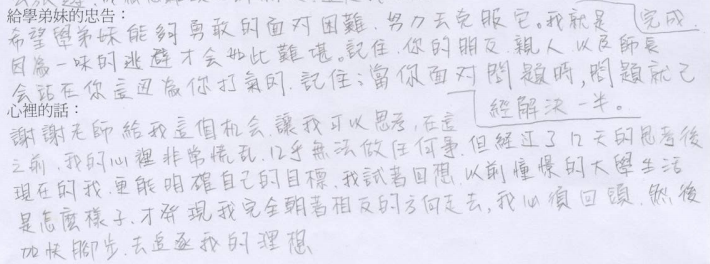 給學弟妹的忠告：
希望學弟妹能夠勇敢的面对困難，努力去克服它。我就是
完成
因為一味的逃避才會如此難堪。記住，你的朋友、親人以及師長
會站在你這边為你打氣的，記住；當你面对問題時，問題就已
經解決一半。
心裡的話：
謝謝老師給我這個机会，讓我可以思考，在這
之前，我的心裡非常慌乱，幾乎無法做任何事，但經过了12天的思考後
現在的我，更能明確自己的目標，我試着回想，以前憧憬的大學生活
是怎麼樣子，才發現我完全朝着相反的方向走去，我必須回頭，然後
加快腳步，去追逐我的理想